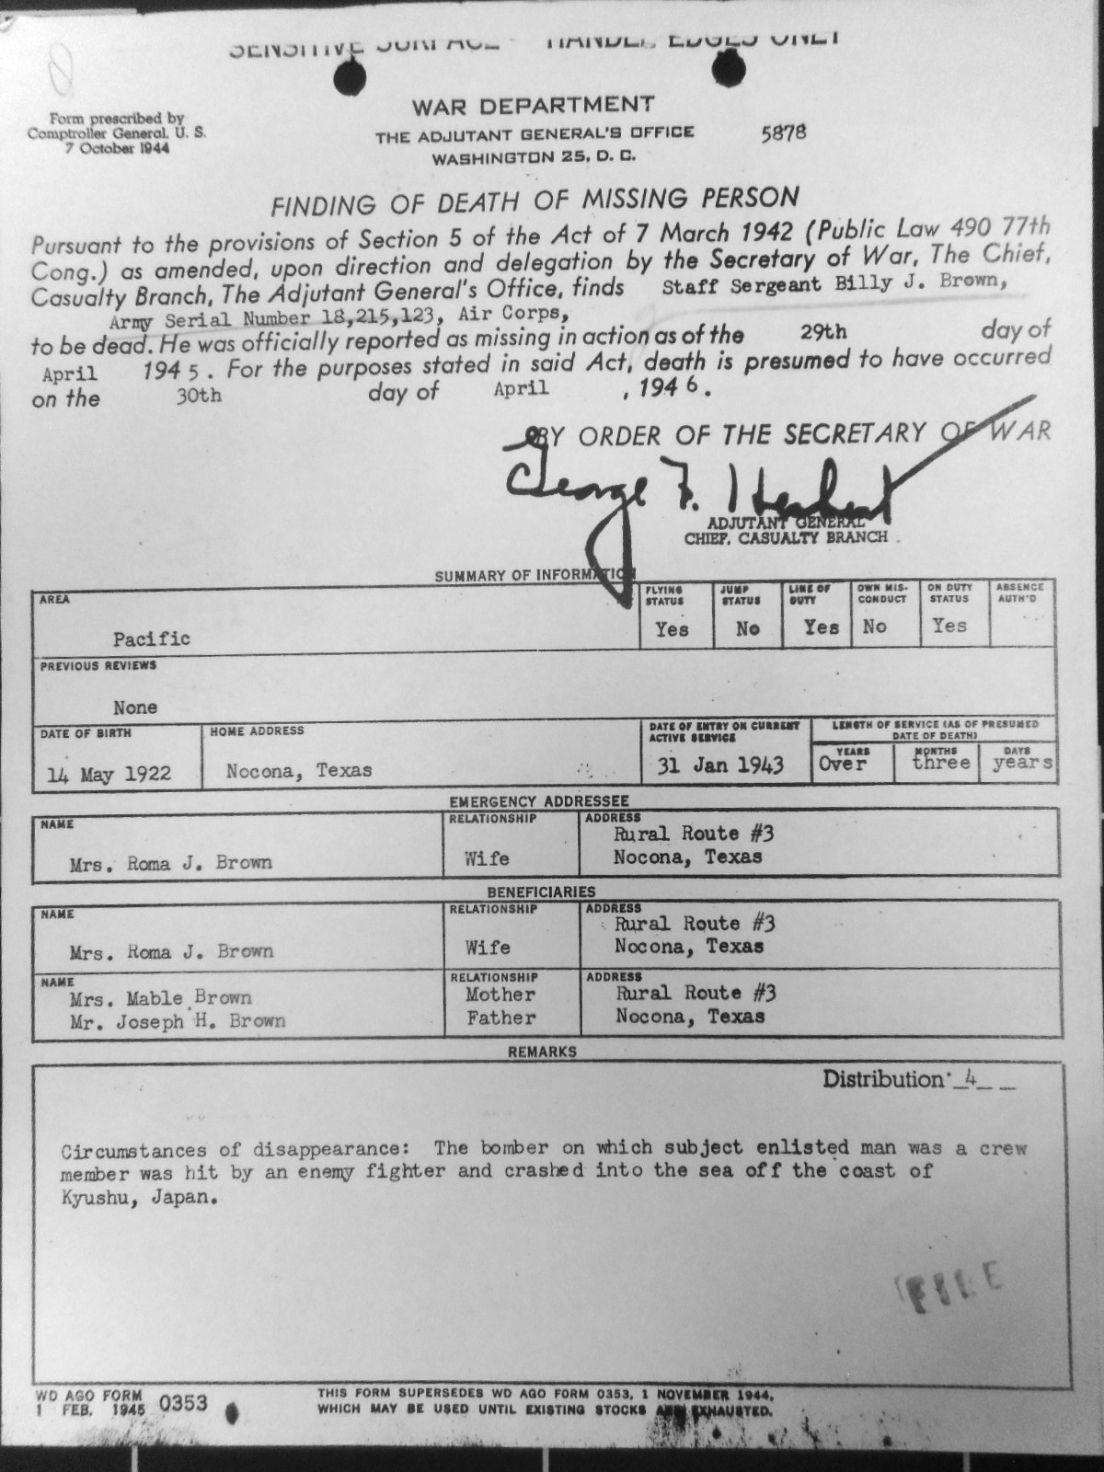 SENSITIVE SURFACE - HANDLE EDGES ONLY
Form prescribed by
Comptroller General, U. S.
7 October 1944
WAR DEPARTMENT
THE ADJUTANT GENERAL'S OFFICE
5878
WASHINGTON 25, D. C.
FINDING OF DEATH OF MISSING PERSON
Pursuant to the provisions of Section 5 of the Act of 7 March 1942 (Public Law 490 77th
Cong.) as amended, upon direction and delegation by the Secretary of War, The Chief,
Casualty Branch, The Adjutant General's Office, finds Staff Sergeant Billy J. Brown,
Army Serial Number 18,215,123, Air Corps,
to be dead. He was officially reported as missing in action as of the 29th day of
April 1945. For the purposes stated in said Act, death is presumed to have occurred
on the 30th day of April , 1946.
BY ORDER OF THE SECRETARY OF WAR
George F. Herbert
ADJUTANT GENERAL
CHIEF, CASUALTY BRANCH
SUMMARY OF INFORMATION
AREA
Pacific
FLYING STATUS
Yes
JUMP STATUS
No
LINE OF DUTY
Yes
OWN MIS-CONDUCT
No
ON DUTY STATUS
Yes
ABSENCE AUTH'D
PREVIOUS REVIEWS
None
DATE OF BIRTH
14 May 1922
HOME ADDRESS
Nocona, Texas
DATE OF ENTRY ON CURRENT
ACTIVE SERVICE
31 Jan 1943
LENGTH OF SERVICE (AS OF PRESUMED
DATE OF DEATH)
YEARS MONTHS DAYS
Over three years
EMERGENCY ADDRESSEE
NAME RELATIONSHIP ADDRESS
Rural Route #3
Mrs. Roma J. Brown Wife Nocona, Texas
BENEFICIARIES
NAME RELATIONSHIP ADDRESS
Rural Route #3
Mrs. Roma J. Brown Wife Nocona, Texas
NAME RELATIONSHIP ADDRESS
Mrs. Mable Brown Mother Rural Route #3
Mr. Joseph H. Brown Father Nocona, Texas
REMARKS
Distribution 4
Circumstances of disappearance: The bomber on which subject enlisted man was a crew
member was hit by an enemy fighter and crashed into the sea off the coast of
Kyushu, Japan.
FILE
WD AGO FORM 0353
1 FEB. 1945
THIS FORM SUPERSEDES WD AGO FORM 0353, 1 NOVEMBER 1944,
WHICH MAY BE USED UNTIL EXISTING STOCKS ARE EXHAUSTED.